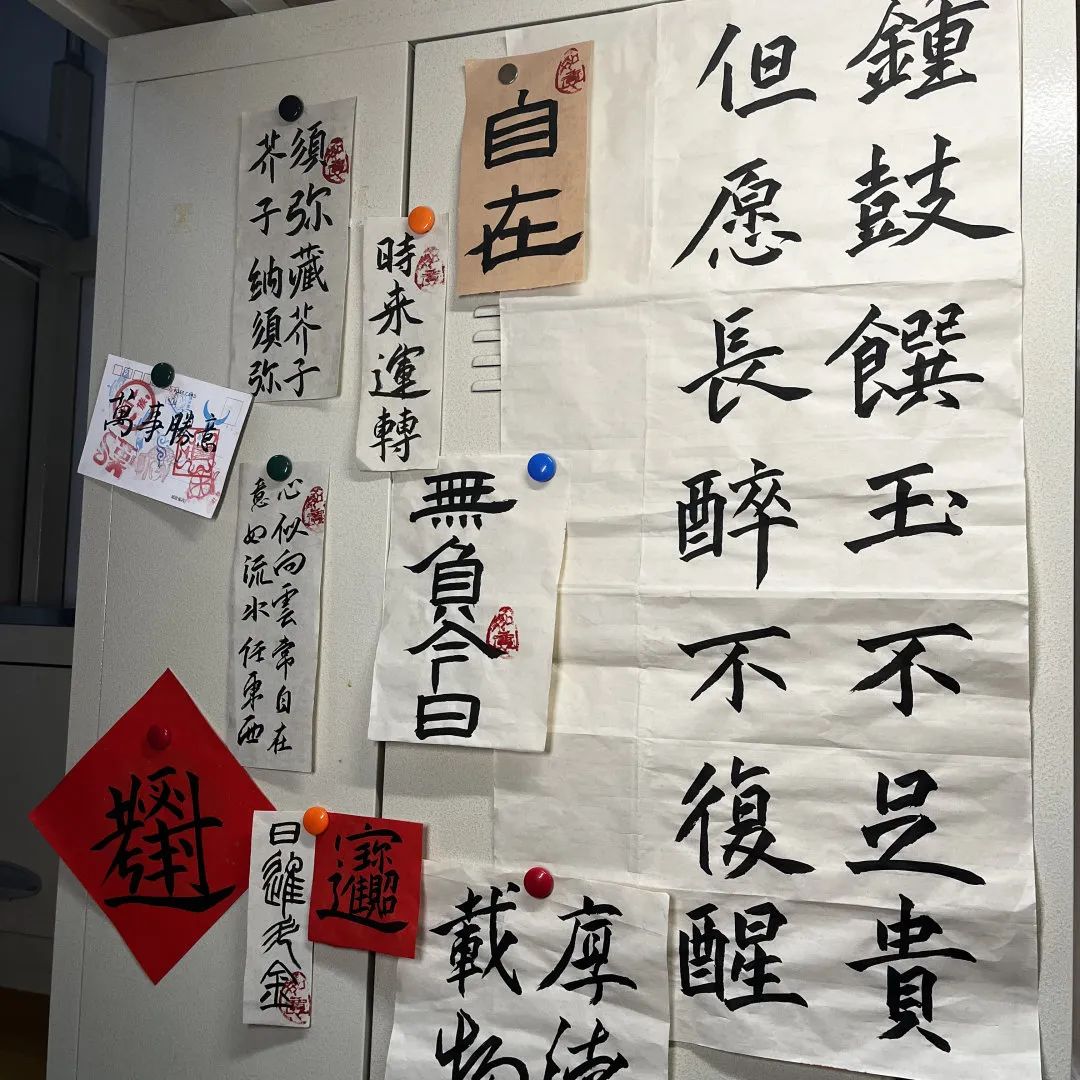 鍾鼓饌玉不足貴
但愿長醉不復醒
自在
須弥藏芥子
芥子納須弥
時来運轉
萬事勝意
心似向雲常自在
意如流水任東西
無負今日
日進斗金
厚德
載物